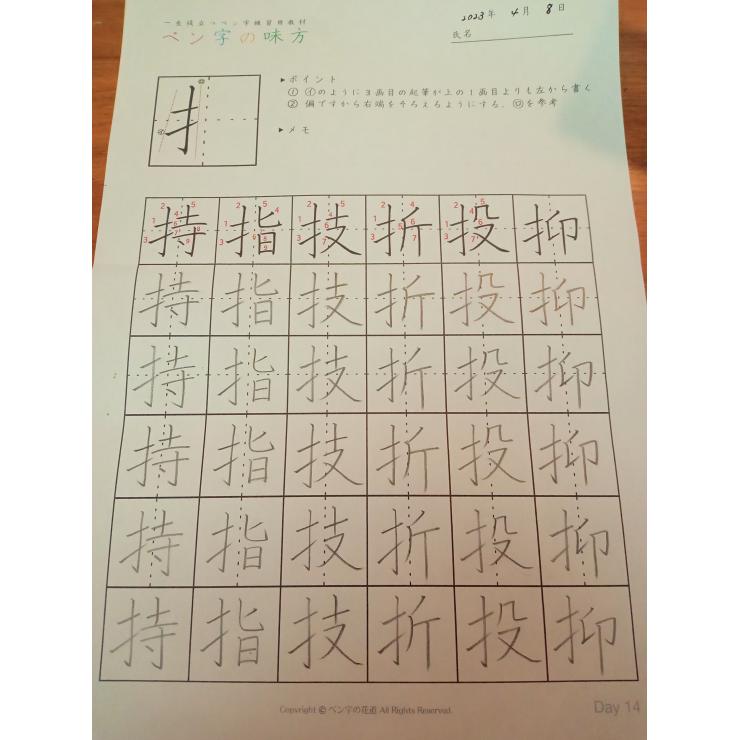 一生役立つペン字練習用教材
ペン字の味方
2023年 4月 8日
氏名
▶ポイント
① ㋑のように3画目の起筆が上の1画目よりも左から書く
② 偏ですから右端をそろえるようにする。㋺を参考
▶メモ
扌
㋺
㋑
持 指 技 折 投 抑
持 指 技 折 投 抑
持 指 技 折 投 抑
持 指 技 折 投 抑
持 指 技 折 投 抑
持 指 技 折 投 抑
Copyright © ペン字の花道 All Rights Reserved.
Day 14